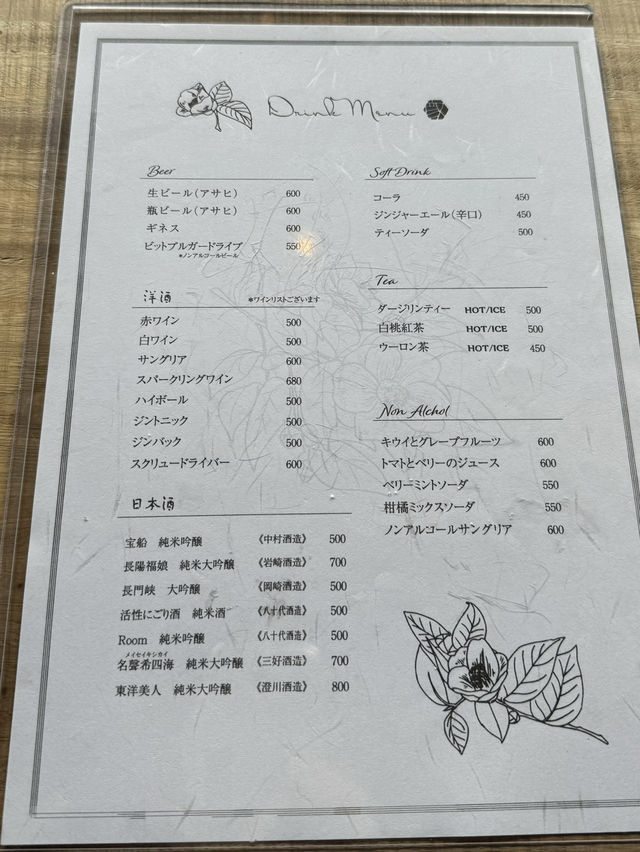 Drink Menu
Beer
生ビール（アサヒ） 600
瓶ビール（アサヒ） 600
ギネス 600
ビットブルガードライブ 550
*ノンアルコールビール
洋酒 *ワインリストございます
赤ワイン 500
白ワイン 500
サングリア 600
スパークリングワイン 680
ハイボール 500
ジントニック 500
ジンバック 500
スクリュードライバー 600
日本酒
宝船 純米吟醸 《中村酒造》 500
長陽福娘 純米大吟醸 《岩崎酒造》 700
長門峡 大吟醸 《岡崎酒造》 500
活性にごり酒 純米酒 《八十代酒造》 500
Room 純米吟醸 《八十代酒造》 500
メイセイキシカイ
名聲希四海 純米大吟醸 《三好酒造》 700
東洋美人 純米大吟醸 《澄川酒造》 800
Soft Drink
コーラ 450
ジンジャーエール（辛口） 450
ティーソーダ 500
Tea
ダージリンティー HOT/ICE 500
白桃紅茶 HOT/ICE 500
ウーロン茶 HOT/ICE 450
Non Alchol
キウイとグレープフルーツ 600
トマトとベリーのジュース 600
ベリーミントソーダ 550
柑橘ミックスソーダ 550
ノンアルコールサングリア 600